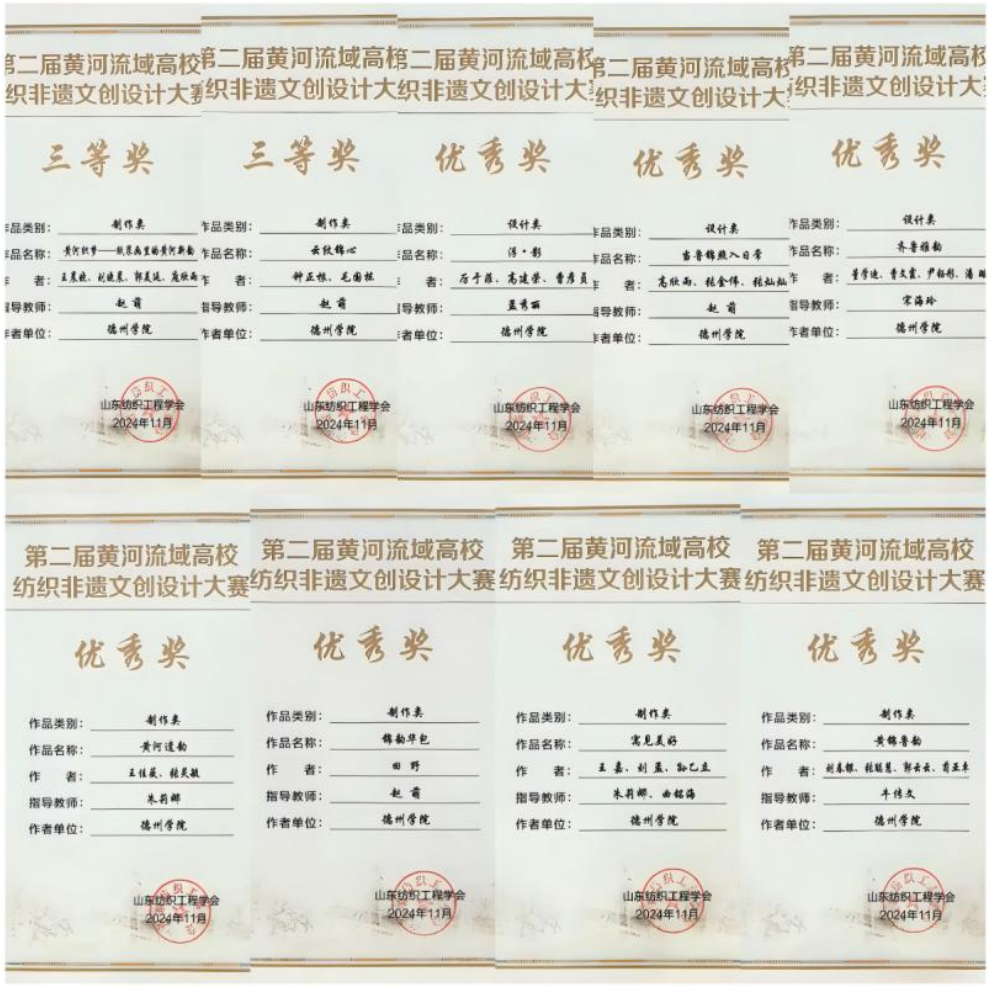 第二届黄河流域高校
织非遗文创设计大赛
三等奖
作品类别：制作类
作品名称：黄河织梦——纸浆画里的黄河新韵
作 者：
指导教师：赵萌
作者单位：德州学院
山东纺织工程学会
2024年11月
第二届黄河流域高校
织非遗文创设计大
三等奖
作品类别：制作类
作品名称：云纹锦心
作 者：钟正根、毛国栋
指导教师：赵萌
作者单位：德州学院
山东纺织工程学会
2024年11月
第二届黄河流域高校
织非遗文创设计大
优秀奖
作品类别：设计类
作品名称：
作 者：
指导教师：孟秀丽
作者单位：德州学院
山东纺织工程学会
2024年11月
第二届黄河流域高校
织非遗文创设计大
优秀奖
作品类别：设计类
作品名称：当鲁锦照入日常
作 者：高欣雨、张金伟、张灿灿
指导教师：赵萌
作者单位：德州学院
山东纺织工程学会
2024年11月
第二届黄河流域高校
织非遗文创设计大
优秀奖
作品类别：设计类
作品名称：齐鲁雅韵
作 者：
指导教师：宋海玲
作者单位：德州学院
山东纺织工程学会
2024年11月
第二届黄河流域高校
纺织非遗文创设计大赛
优秀奖
作品类别：制作类
作品名称：黄河遗韵
作 者：王佳薇、张灵敏
指导教师：朱莉娜
作者单位：德州学院
山东纺织工程学会
2024年11月
第二届黄河流域高校
纺织非遗文创设计大赛
优秀奖
作品类别：制作类
作品名称：锦韵华包
作 者：田野
指导教师：赵萌
作者单位：德州学院
山东纺织工程学会
2024年11月
第二届黄河流域高校
纺织非遗文创设计大赛
优秀奖
作品类别：制作类
作品名称：寓见美好
作 者：王嘉、刘孟、孙乙立
指导教师：朱莉娜、曲铭海
作者单位：德州学院
山东纺织工程学会
2024年11月
第二届黄河流域高校
纺织非遗文创设计大赛
优秀奖
作品类别：制作类
作品名称：黄锦鲁韵
作 者：刘春银、张聪慧、郭云云、肖亚卓
指导教师：牛传文
作者单位：德州学院
山东纺织工程学会
2024年11月